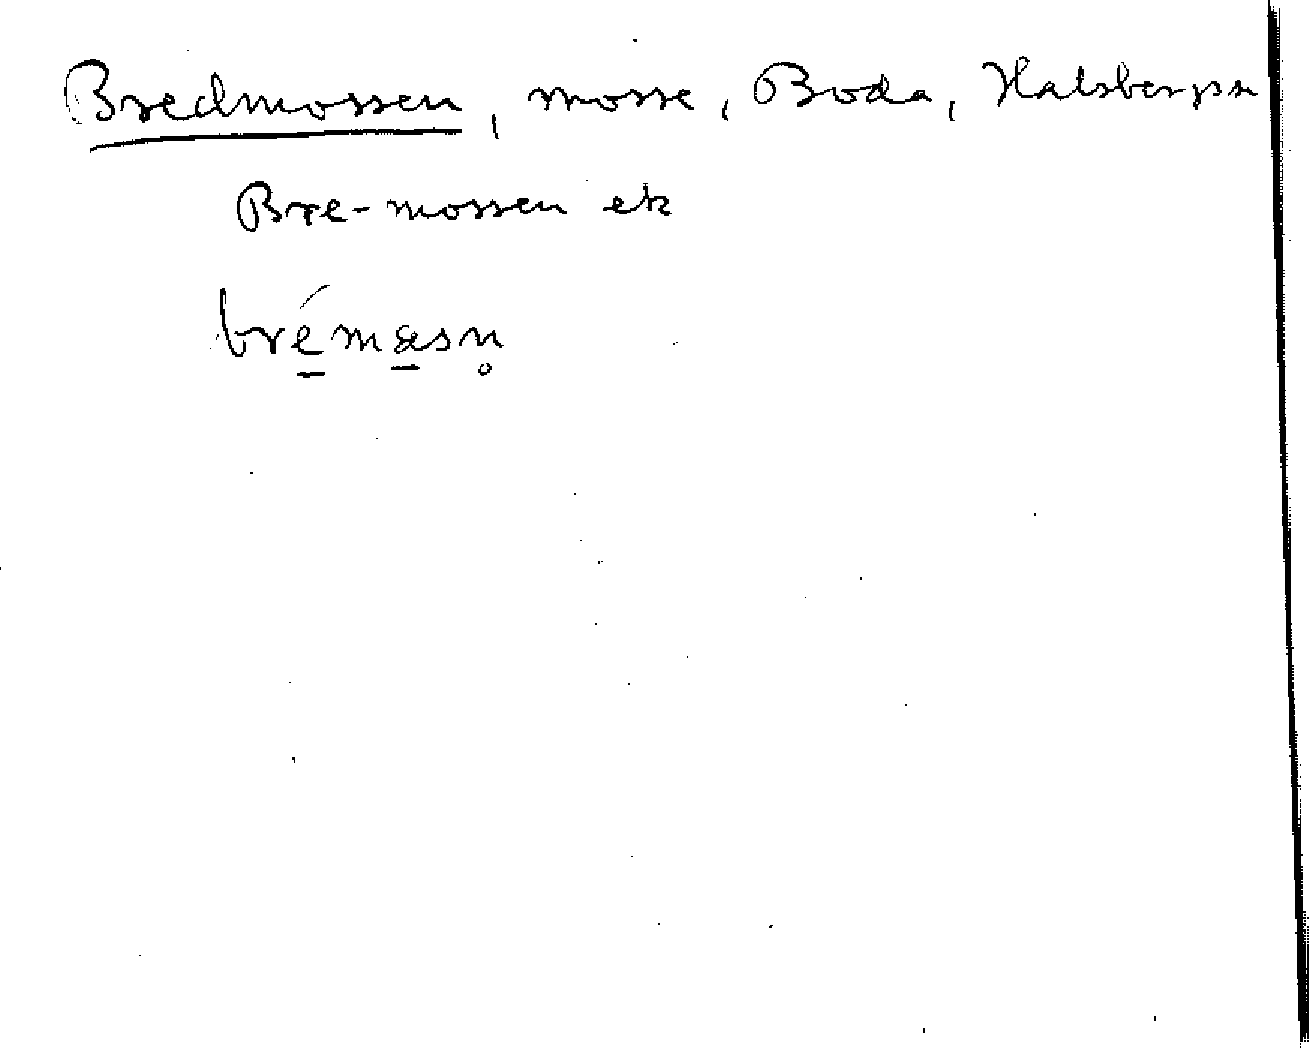 Bredmossen, mosse, Boda, Halsbergs sn
Bre-mossen ek
brémasn̥